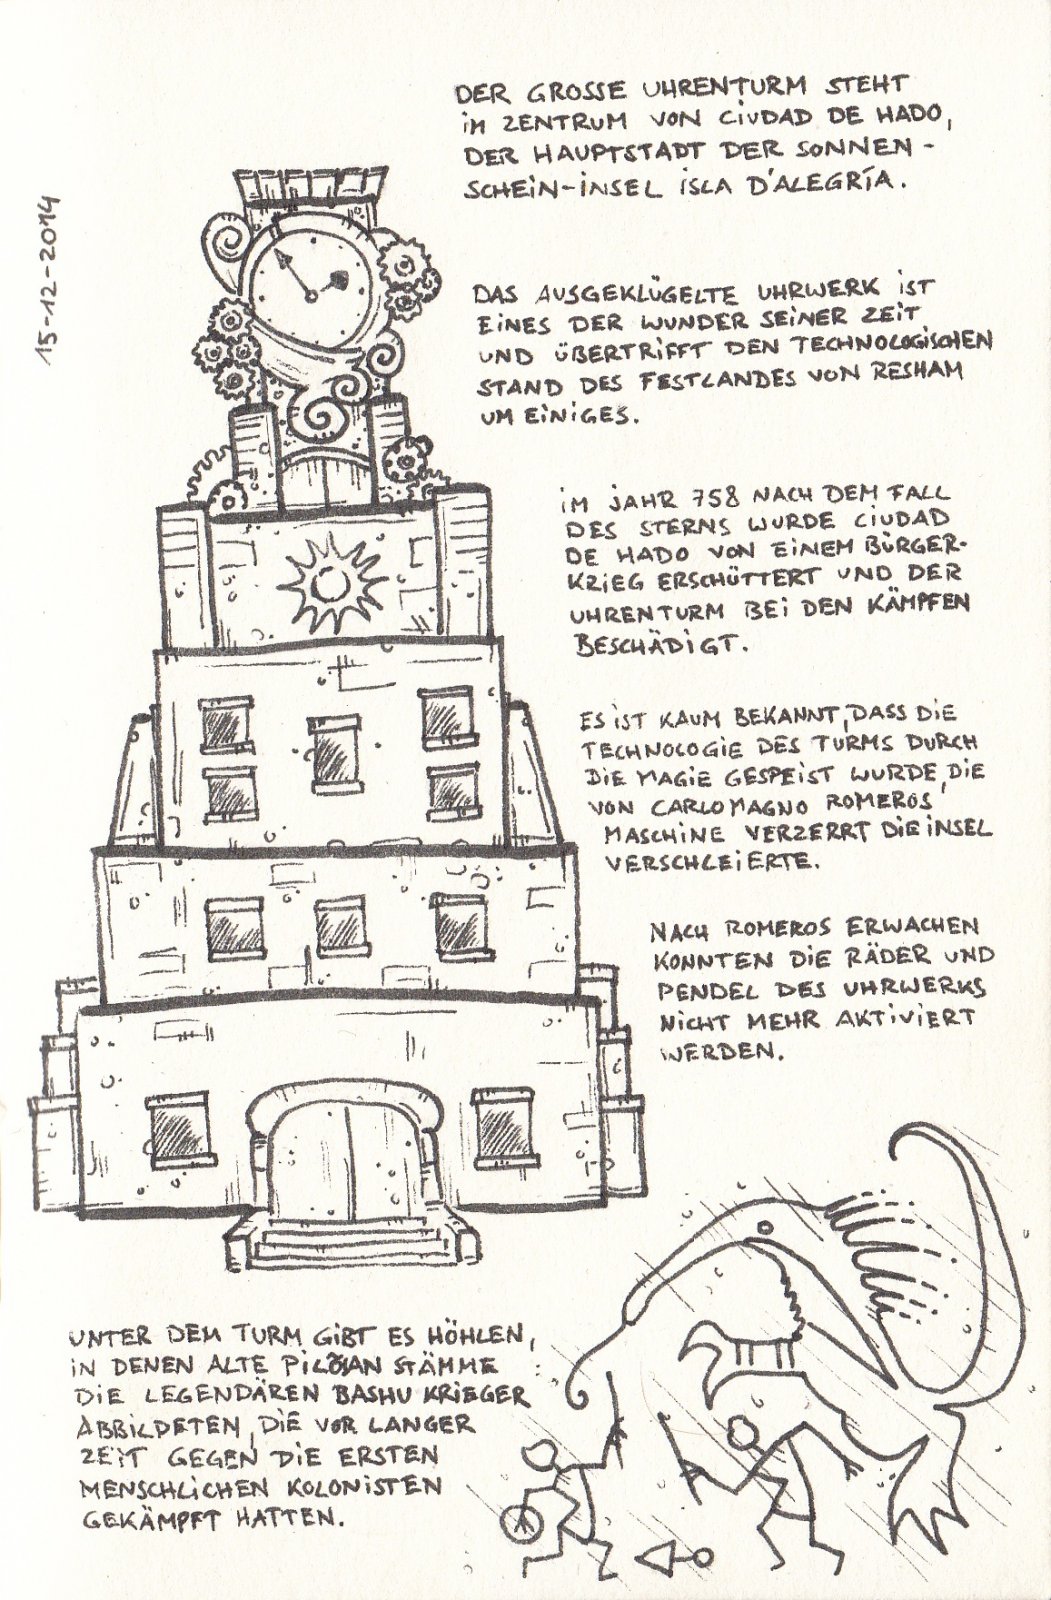 15-12-2014
DER GROSSE UHRENTURM STEHT
IM ZENTRUM VON CIUDAD DE HADO,
DER HAUPTSTADT DER SONNEN-
SCHEIN-INSEL ISLA D'ALEGRÍA.
DAS AUSGEKLÜGELTE UHRWERK IST
EINES DER WUNDER SEINER ZEIT
UND ÜBERTRIFFT DEN TECHNOLOGISCHEN
STAND DES FESTLANDES VON RESHAM
UM EINIGES.
IM JAHR 758 NACH DEM FALL
DES STERNS WURDE CIUDAD
DE HADO VON EINEM BÜRGER-
KRIEG ERSCHÜTTERT UND DER
UHRENTURM BEI DEN KÄMPFEN
BESCHÄDIGT.
ES IST KAUM BEKANNT, DASS DIE
TECHNOLOGIE DES TURMS DURCH
DIE MAGIE GESPEIST WURDE, DIE
VON CARLOMAGNO ROMEROS
MASCHINE VERZERRT DIE INSEL
VERSCHLEIERTE.
NACH ROMEROS ERWACHEN
KONNTEN DIE RÄDER UND
PENDEL DES UHRWERKS
NICHT MEHR AKTIVIERT
WERDEN.
UNTER DEM TURM GIBT ES HÖHLEN,
IN DENEN ALTE STÄMME
DIE LEGENDÄREN BASHU KRIEGER
ABBILDETEN, DIE VOR LANGER
ZEIT GEGEN DIE ERSTEN
MENSCHLICHEN KOLONISTEN
GEKÄMPFT HATTEN.